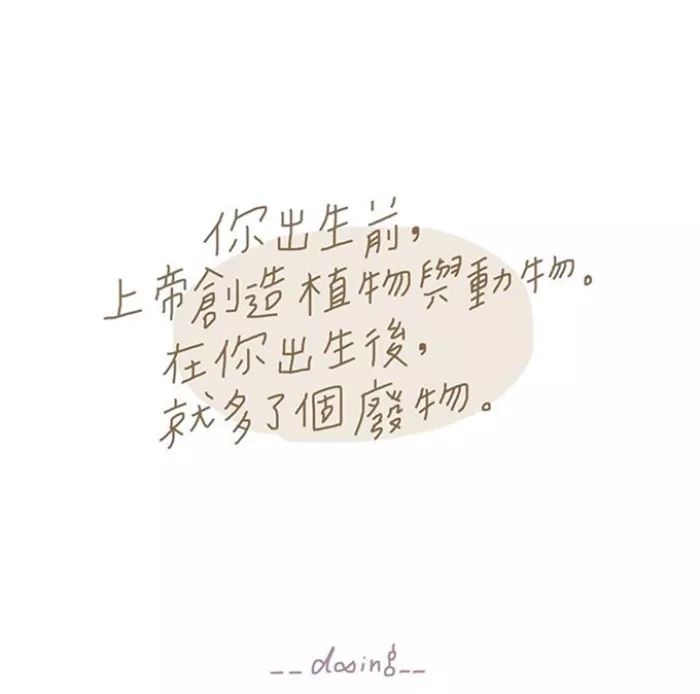 你出生前，
上帝創造植物與動物。
在你出生後，
就多了個廢物。
__dosing__